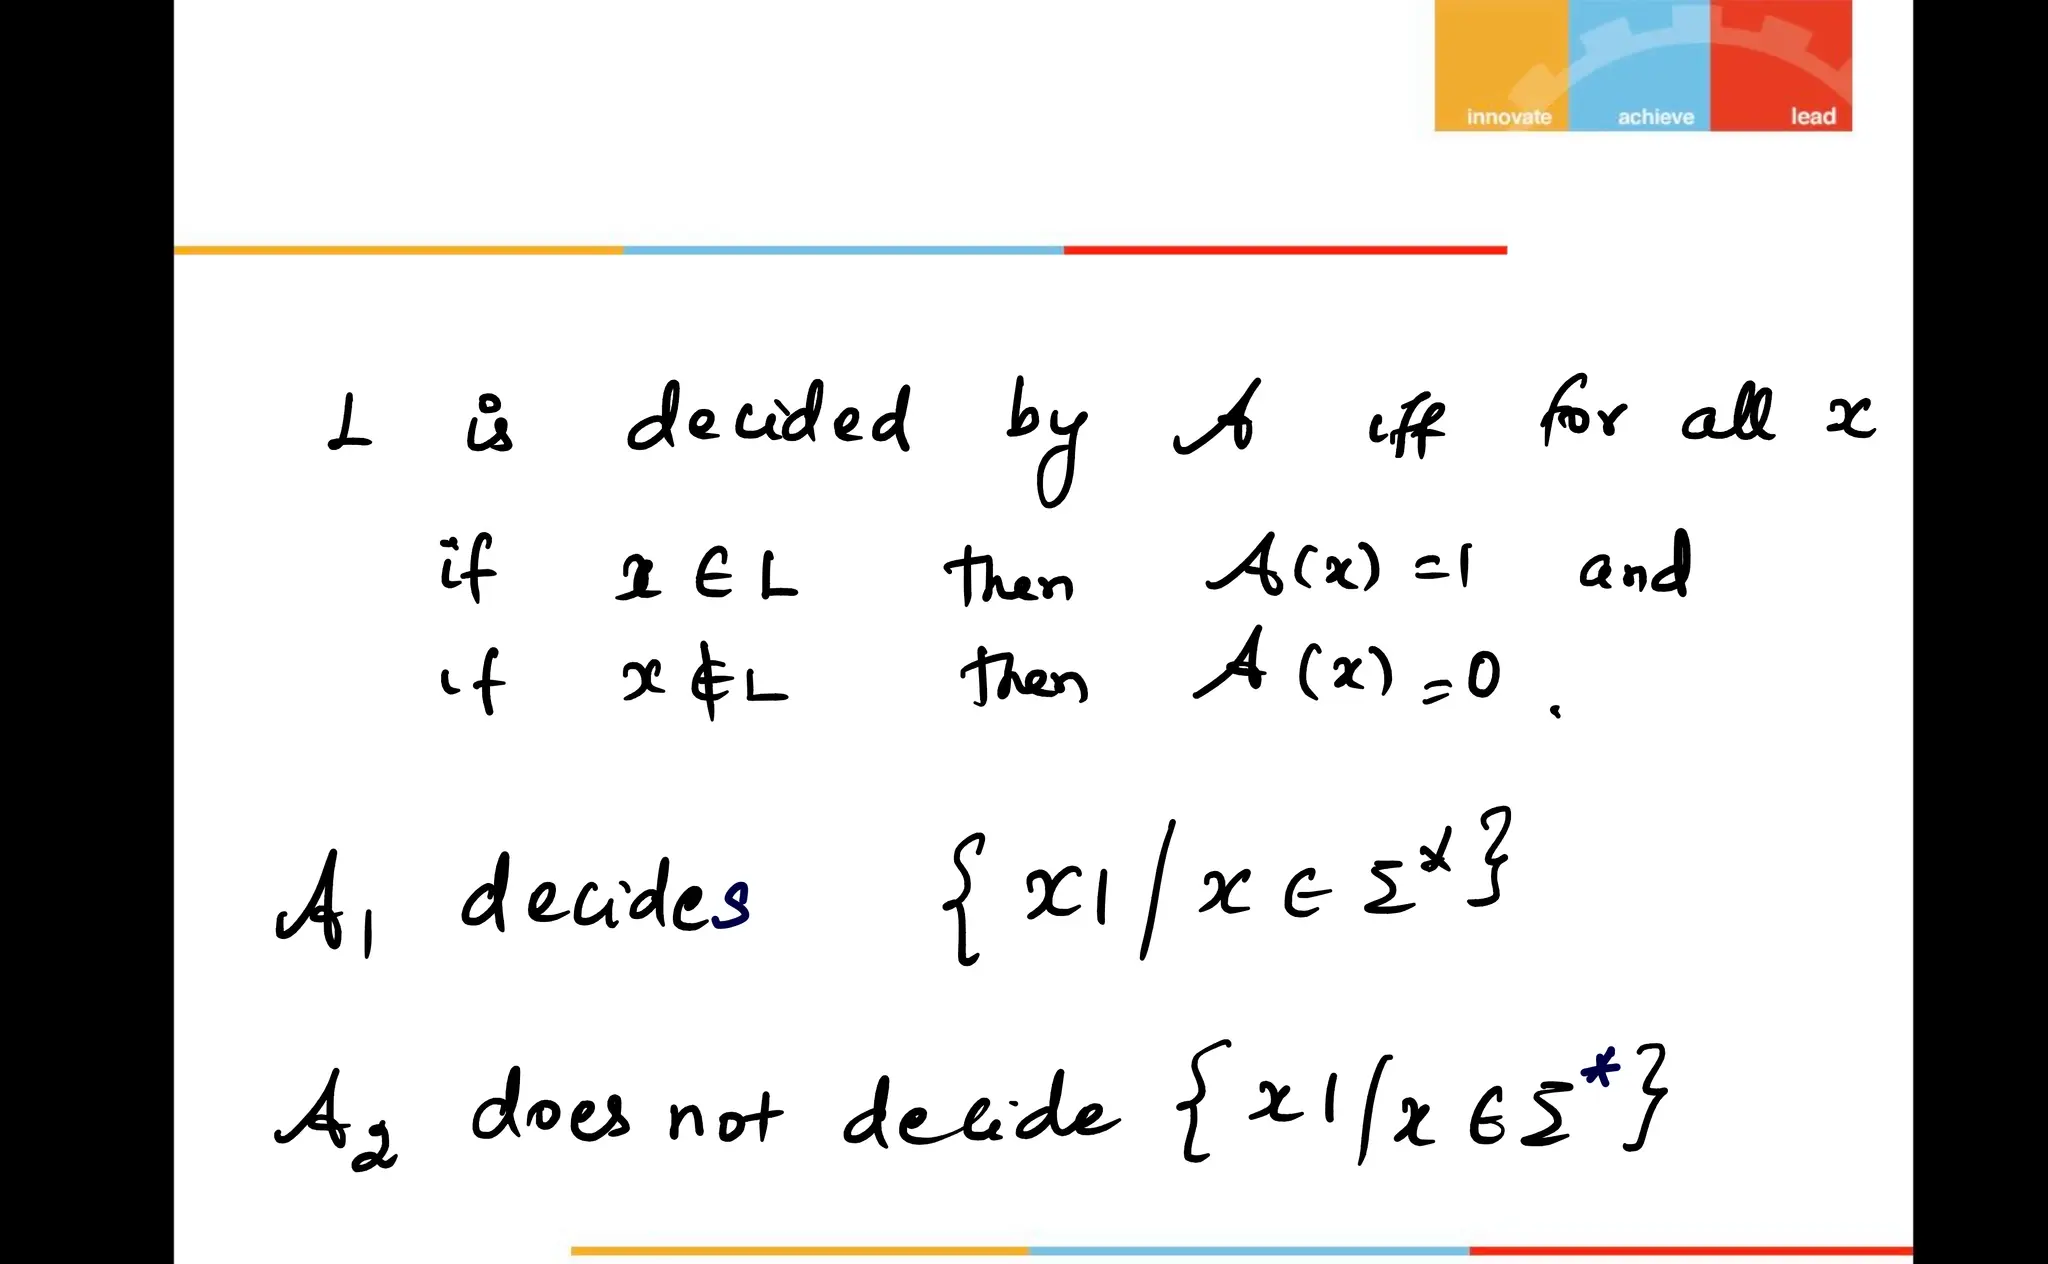 innovate achieve lead
L is decided by A iff for all x
if x ∈ L then A(x) = 1 and
if x ∉ L then A(x) = 0.
A₁ decides {x1 / x ∈ Σ*}
A₂ does not decide {x1 / x ∈ Σ*}